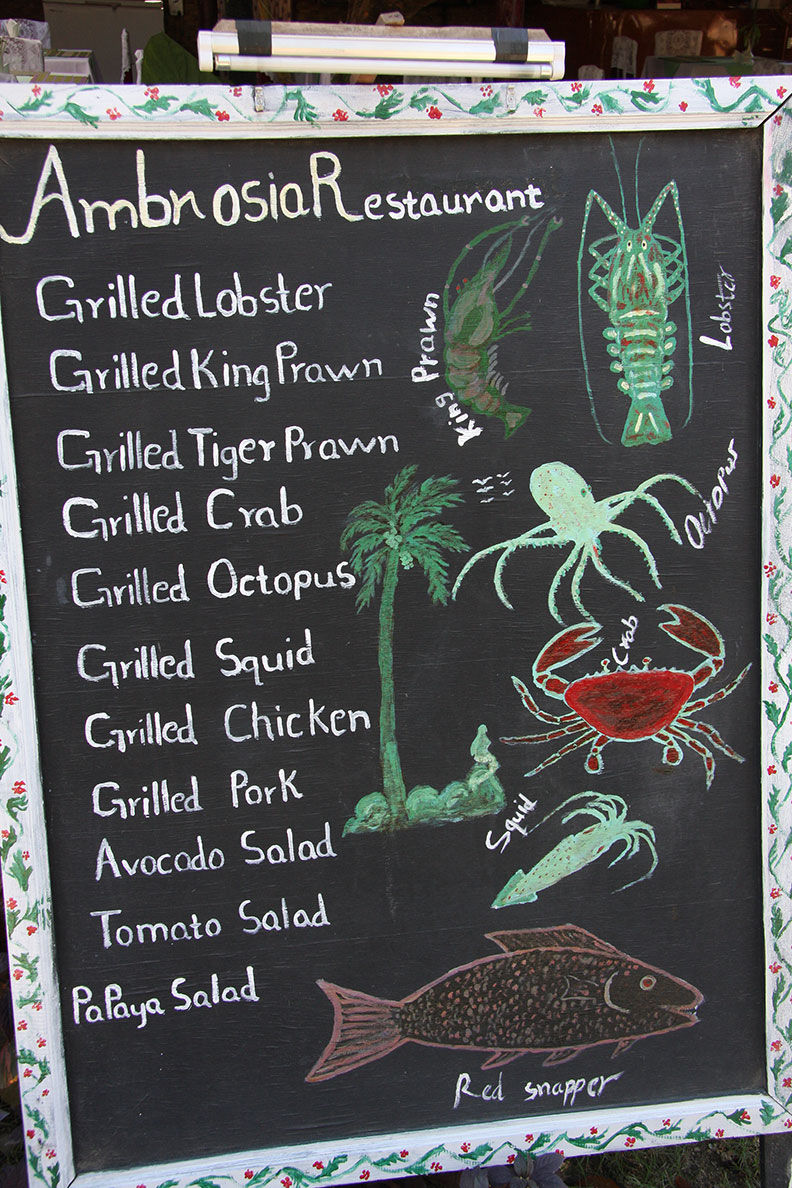 Ambrosia Restaurant
Grilled Lobster
Grilled King Prawn
Grilled Tiger Prawn
Grilled Crab
Grilled Octopus
Grilled Squid
Grilled Chicken
Grilled Pork
Avocado Salad
Tomato Salad
PaPaya Salad
King Prawn
Lobster
Octopus
Crab
Squid
Red snapper